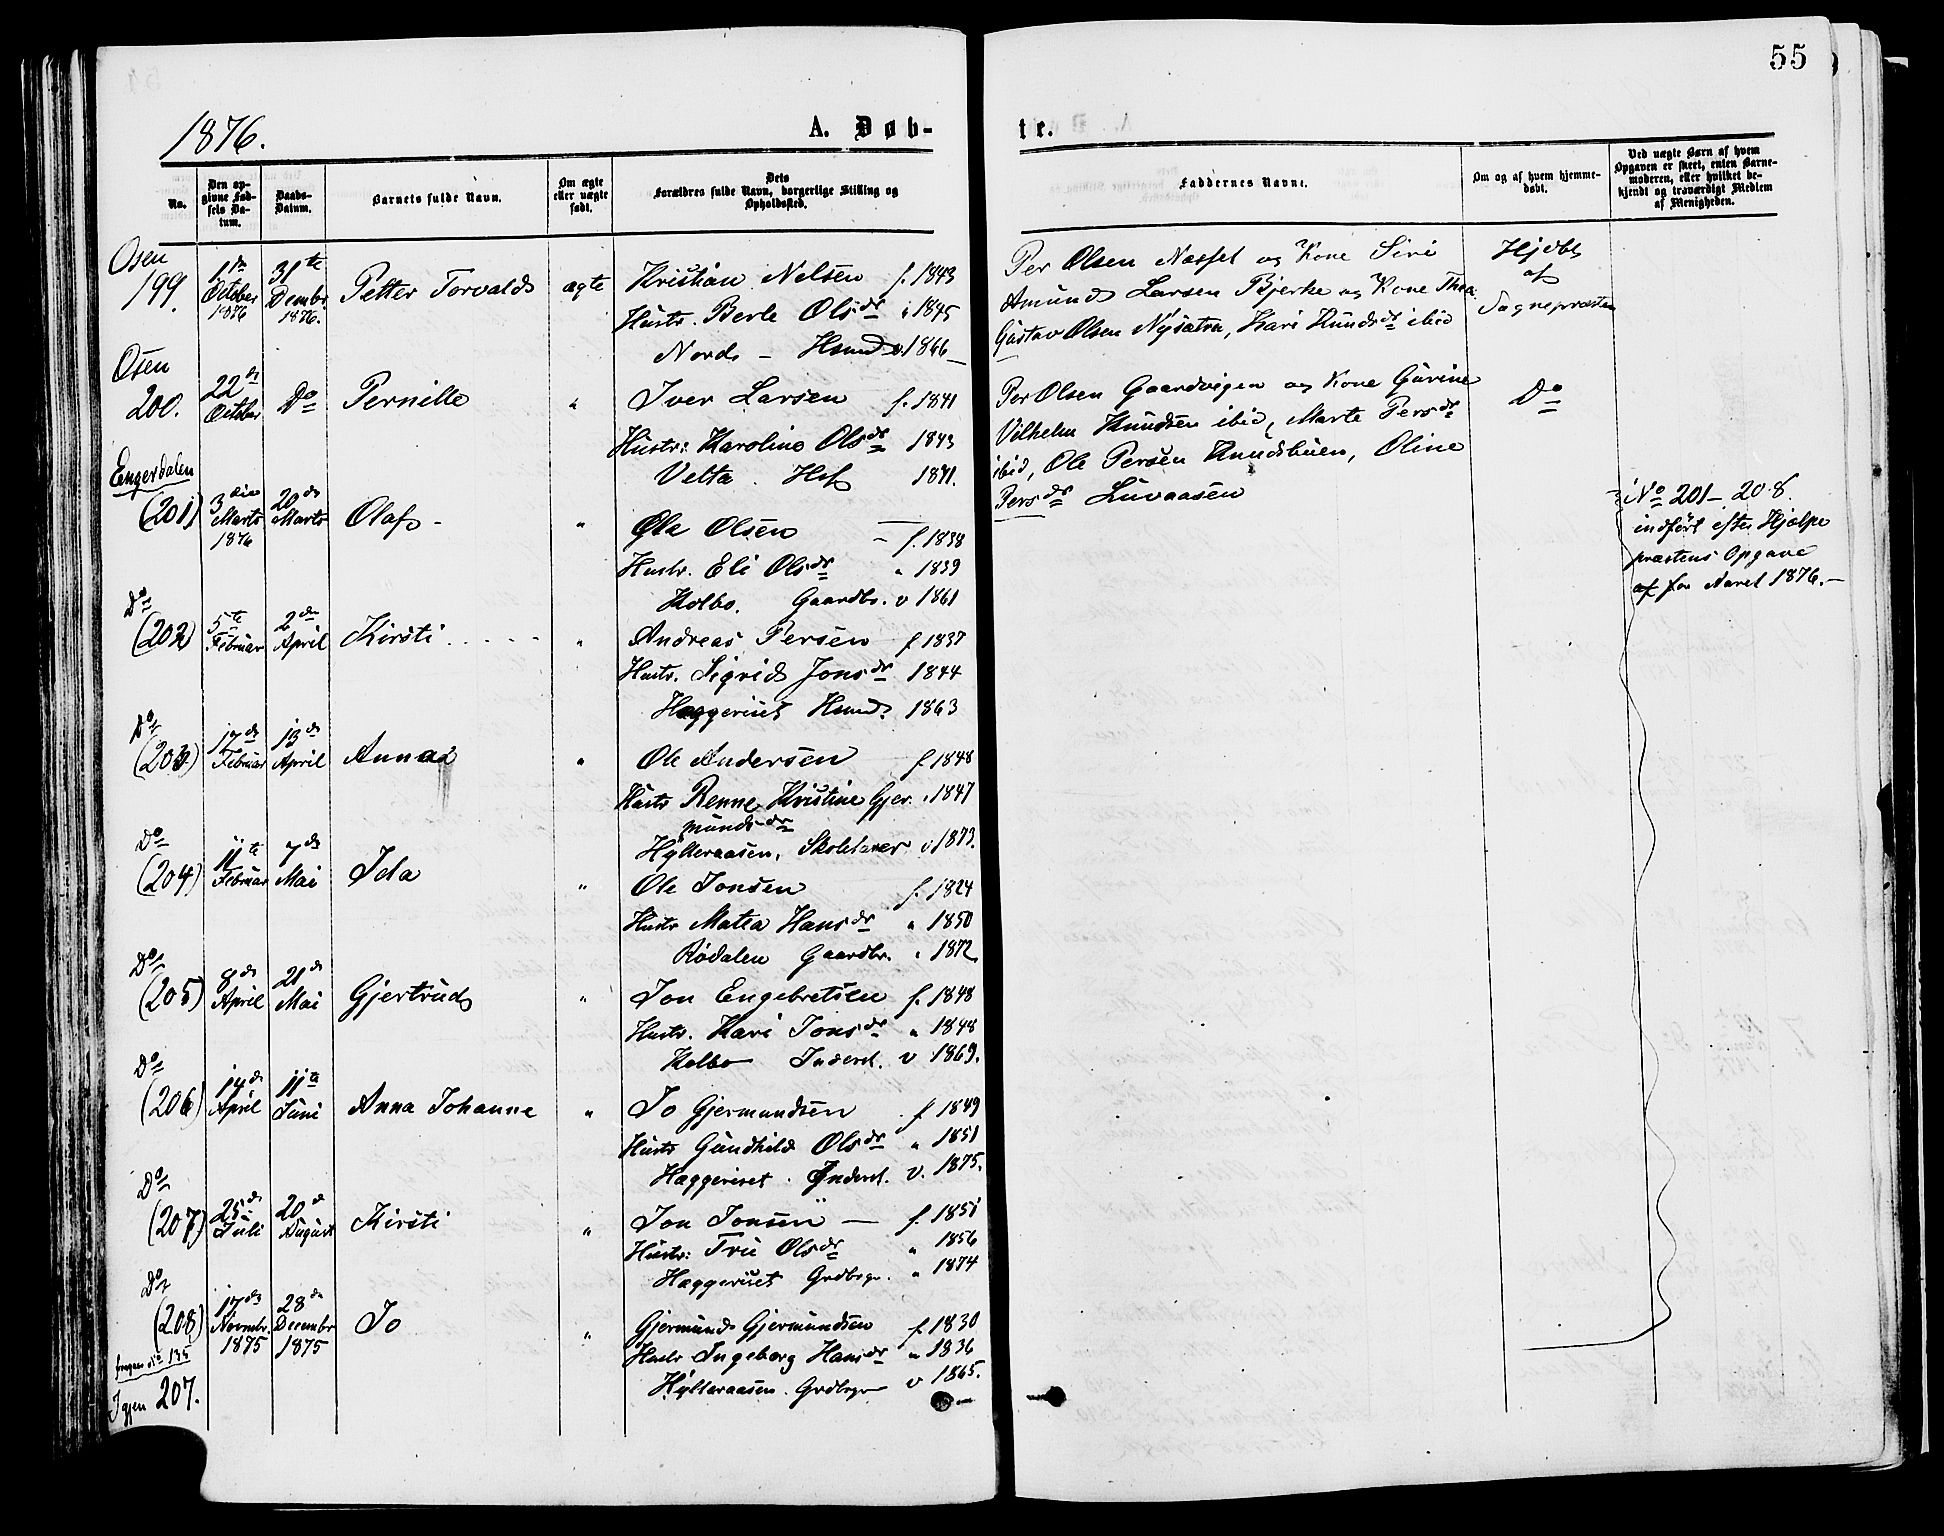 55
1876.
A. Døb-
te.
No.
Den op-
givne Fød-
sels Da-
tum.
Daabs-
Datum.
Barnets fulde Navn.
Om ægte
eller uægte
født.
Dets
Forældres fulde Navn, borgerlige Stilling og
Opholdssted.
Faddernes Navne.
Om og af hvem hjemme-
døbt.
Ved uægte Børn af hvem
Opgaven er skeet, enten Barne-
moderen, eller hvilket be-
kjendt og troværdigt Medlem
af Menigheden.
Osen
199.
1ste
October
1876
31te
Decembr
1876.
Petter Torvald
ægte
Kristian Nelsen f. 1843
Hustr. Berte Olsdr " 1845
Nord - Husmd v. 1866
Per Olsen Næsset og Kone Siri
Amund Larsen Bjerke og Kone Thea
Gustav Olsen Nysætra, Kari Knudsdr ibid
Hjdbt
af
Sognepræsten
Osen
200.
22de
October
Do
Pernille
"
Iver Larsen f. 1841
Hustr: Karoline Olsdr 1843
Velta. Hsf 1871.
Per Olsen Gaardvigen og Kone Gurine
Vilhelm Knudsen ibid, Marte Persdr
ibid, Ole Persen Knudsbuen, Oline
Persdr Luvaasen
Do
Engerdalen
(201)
3die
Marts
1876
20de
Marts
Olaf -
"
Ole Olsen f. 1838
Hustr. Eli Olsdr " 1839
Kolbo. Gaardbr. v 1861
No 201 - 208.
indført efter Hjælpe
præstens Opgave
af for Aaret 1876. -
Do
(202)
5te
Februar
2den
April
Kirsti
"
Andreas Persen f 1837
Hustr. Sigrid Jonsdr 1844
Hæggeriset Husmd. 1863
Do
(203)
17de
Februar
13de
April
Anna
"
Ole Andersen f 1848
Hustr Renne Kristine Gjer- " 1847
mundsdr
Hylleraasen, Skolelærer v 1873.
Do
(204)
11te
Februar
7de
Mai
Ida
"
Ole Jonsen f. 1824
Hustr Matea Hansdr " 1850
Rødalen Gaardbr. " 1872
Do
(205)
8de
April
21de
Mai
Gjertrud
"
Jon Engebretsen f. 1848
Hustr. Kari Jonsdr " 1848
Kolbo Inderst. v 1869.
Do
(206)
14de
April
11te
Juni
Anna Johanne
"
Jo Gjermundsen f 1849
Hustr Gundhild Olsdr " 1851
Hæggeriset. Inderst. v. 1875.
Do
(207)
25de
Juli
20de
August
Kirsti
"
Jon Jonsen f. 1851
Hustr: Tru Olsdr " 1856
Hæggeriset Grdbgr. " 1874
Do
(208)
17de
Novmbr.
1875
28de
Decembr
1875
Jo
"
Gjermund Gjermundsen f. 1830
Hustr Ingeborg Hansdr " 1836
Hylleraasen. Grdbgr v 1865.
No 135
Igjen 207.